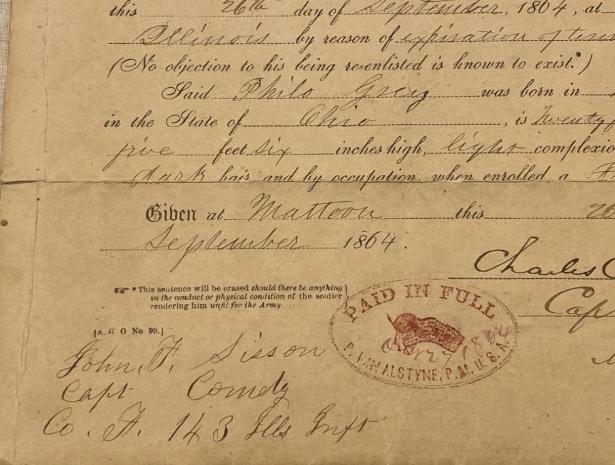 this 26th day of September, 1864, at
Illinois by reason of expiration of term
(No objection to his being re-enlisted is known to exist.*)
Said Philo Greig was born in
in the State of Ohio, is Twenty
five feet six inches high, light complexio
dark hair and by occupation, when enrolled a
Given at Mattoon this 26
September 1864.
Charles C
Cap
☞ * This sentence will be erased should there be anything
in the conduct or physical condition of the soldier
rendering him unfit for the Army
[A. G O No 99.]
PAID IN FULL
P. VAN ALSTYNE, P.M. U.S.A.
John F. Sisson
Capt Comdg
Co. F. 143 Ills Inft